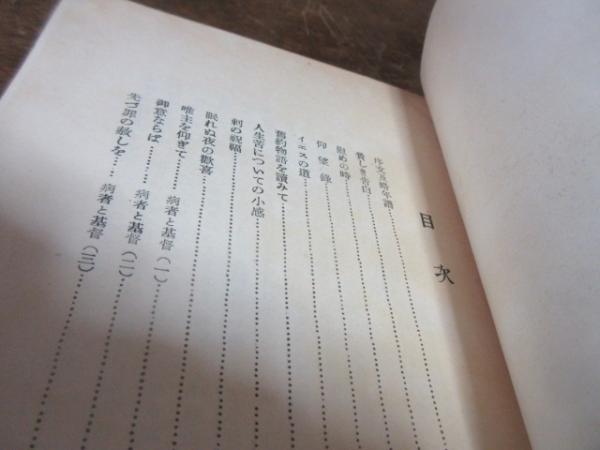 目次
序文及略年譜
貧しき告白
慰めの時
仰望錄
イエスの道
舊約物語を讀みて
人生苦についての小感
刺の祝福
眠れぬ夜の歡喜
唯主を仰ぎて……病者と基督（一）
御意ならば……病者と基督（二）
先づ罪の赦しを……病者と基督（三）